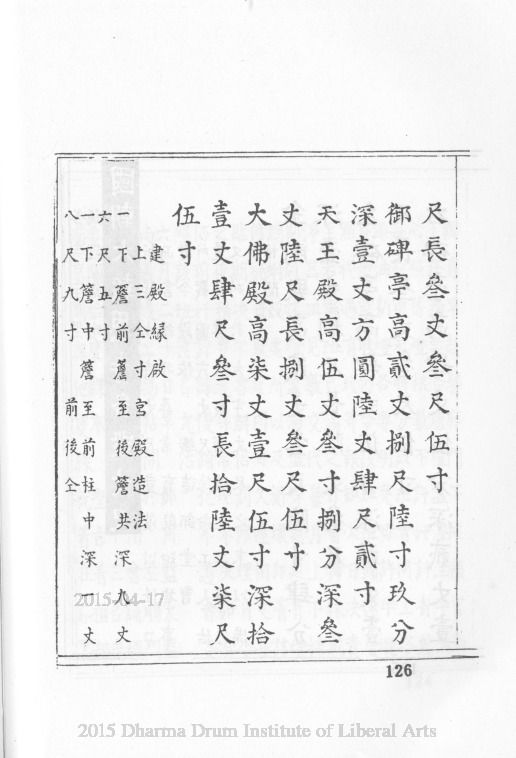 尺長叄丈叄尺伍寸
御碑亭高貳丈捌尺陸寸玖分
深壹丈方圓陸丈肆尺貳寸
天王殿高伍丈叄寸捌分深叄
丈陸尺長捌丈叄尺伍寸
大佛殿高柒丈壹尺伍寸深拾
壹丈肆尺叄寸長拾陸丈柒尺
伍寸
建殿緣啟
上三仝寸宮殿造法
一下簷前簷至後簷共深九丈
六尺五寸
一下簷中簷至前柱中深一丈
八尺九寸 前後仝
126
2015-04-17
2015 Dharma Drum Institute of Liberal Arts